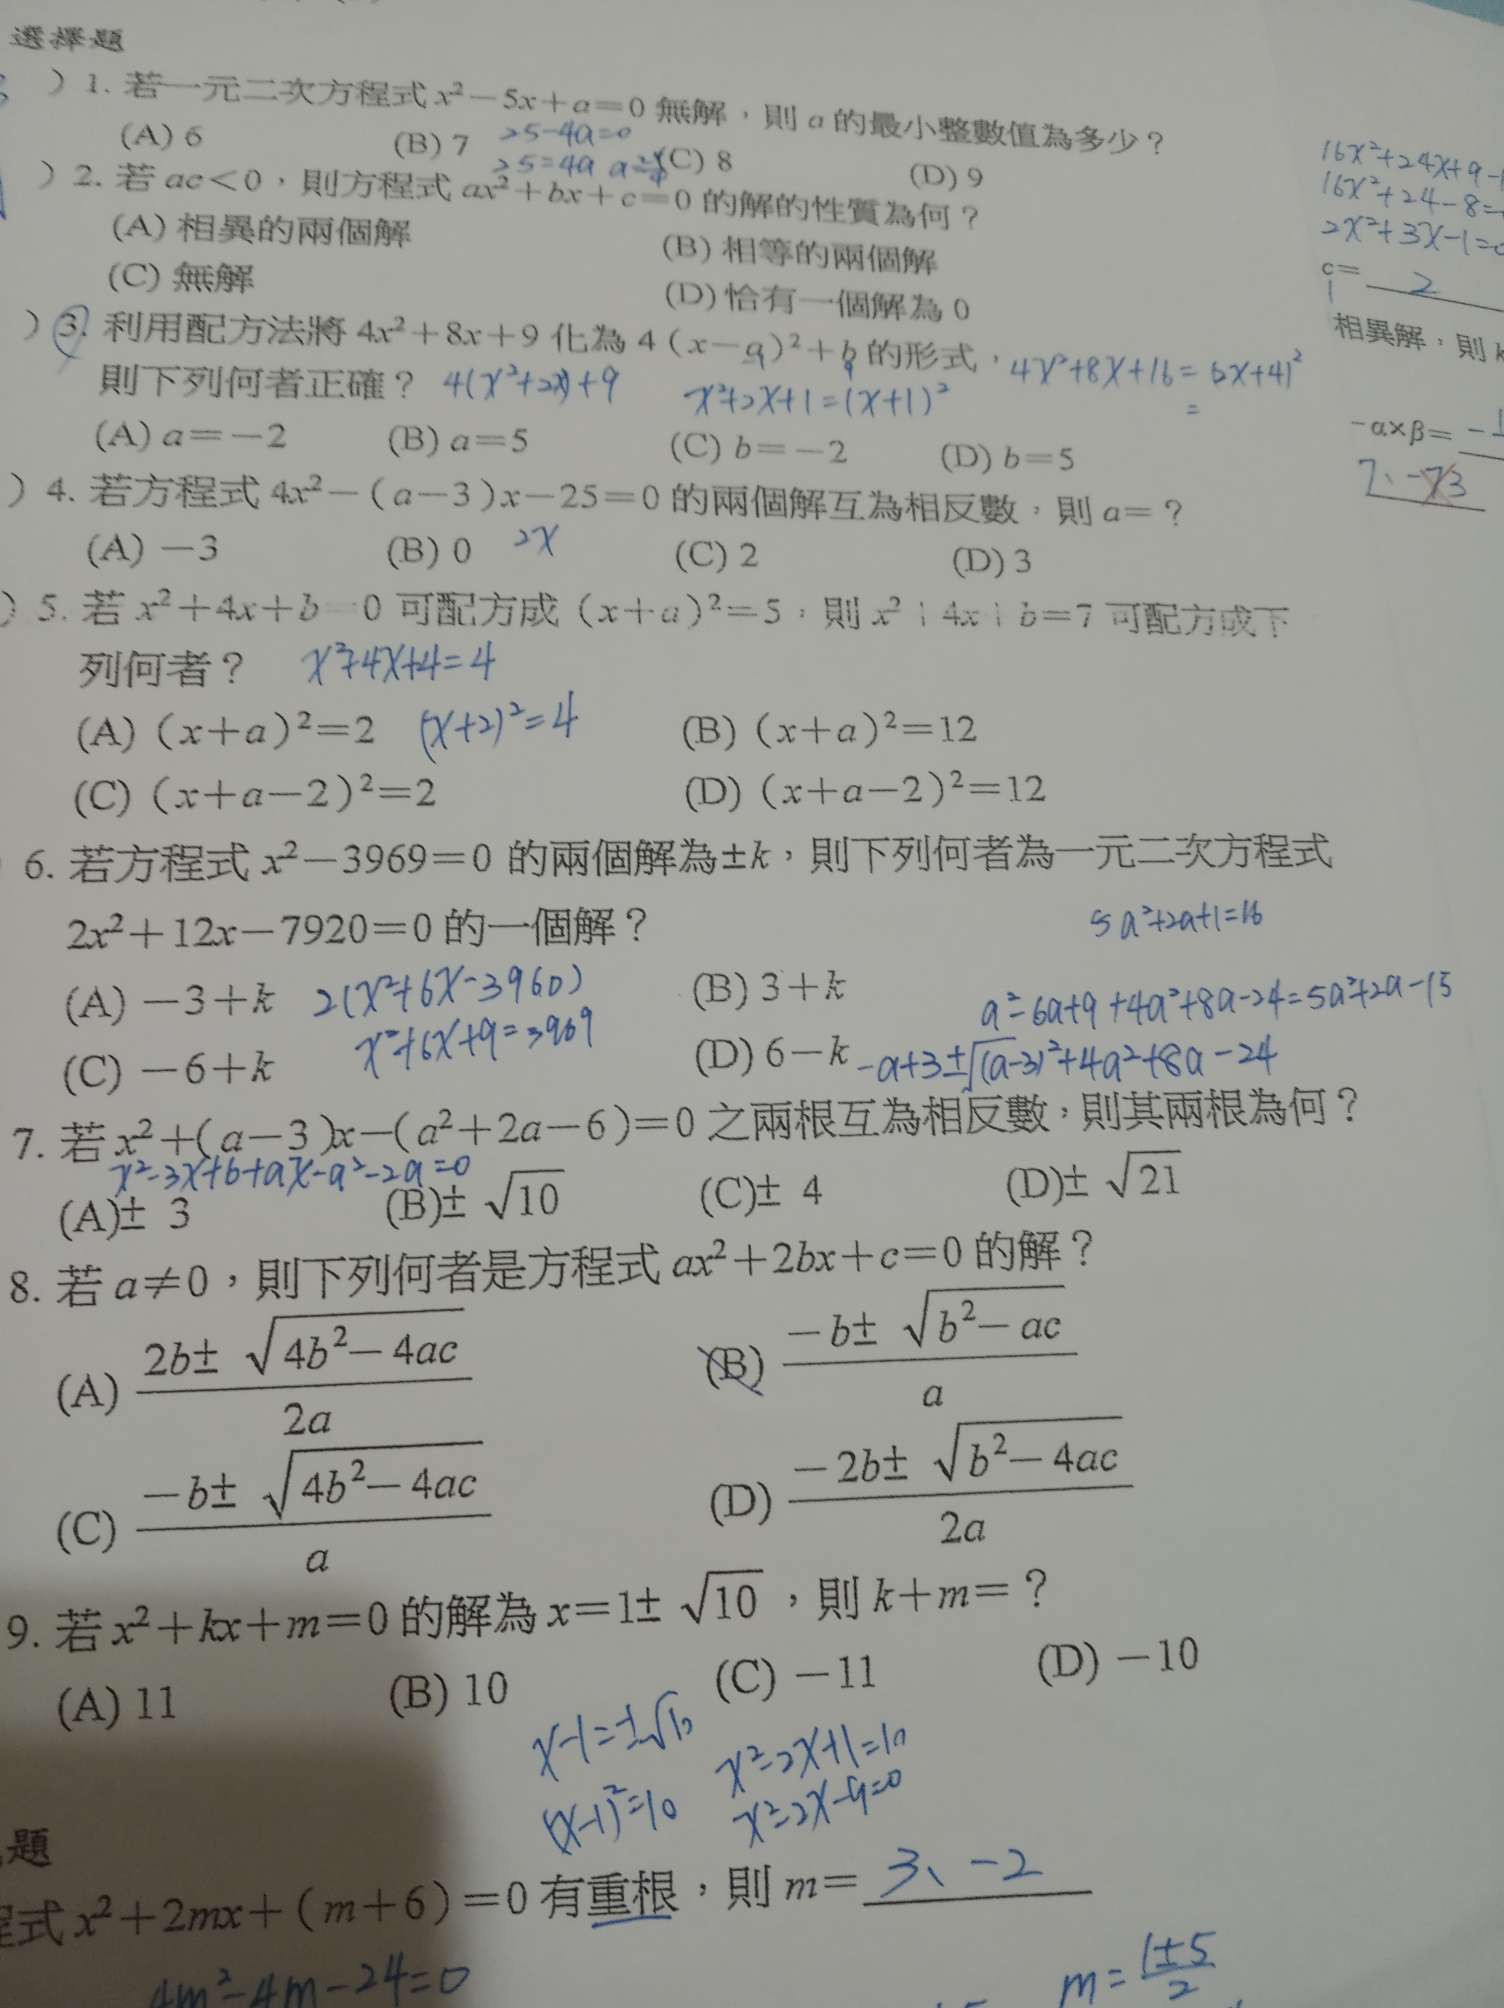 選擇題
) 1. 若一元二次方程式 x²-5x+a=0 無解，則 a 的最小整數值為多少？
(A) 6 (B) 7 (C) 8 (D) 9
25-4a=0
25=4a
) 2. 若 ac<0，則方程式 ax²+bx+c=0 的解的性質為何？
(A) 相異的兩個解 (B) 相等的兩個解
(C) 無解 (D) 恰有一個解為 0
) 3. 利用配方法將 4x²+8x+9 化為 4(x-a)²+b 的形式，
則下列何者正確？ 4(x²+2x)+9 x²+2x+1=(x+1)²
4x²+8x+16=(2x+4)²
=
(A) a=-2 (B) a=5 (C) b=-2 (D) b=5
) 4. 若方程式 4x²-(a-3)x-25=0 的兩個解互為相反數，則 a=？
(A) -3 (B) 0 (C) 2 (D) 3
2x
) 5. 若 x²+4x+b=0 可配方成 (x+a)²=5，則 x²+4x+b=7 可配方成下
列何者？ x²+4x+4=4
(A) (x+a)²=2 (x+2)²=4 (B) (x+a)²=12
(C) (x+a-2)²=2 (D) (x+a-2)²=12
6. 若方程式 x²-3969=0 的兩個解為±k，則下列何者為一元二次方程式
2x²+12x-7920=0 的一個解？
5a²+2a+1=16
(A) -3+k 2(x²+6x-3960) (B) 3+k
x²+6x+9=3969
a²-6a+9+4a²+8a-24=5a²+2a-15
(C) -6+k (D) 6-k
-a+3±√(a-3)²+4a²+8a-24
7. 若 x²+(a-3)x-(a²+2a-6)=0 之兩根互為相反數，則其兩根為何？
x²-3x+6+ax-a²-2a=0
(A)± 3 (B)± √10 (C)± 4 (D)± √21
8. 若 a≠0，則下列何者是方程式 ax²+2bx+c=0 的解？
(A) (2b± √(4b²-4ac))/2a (B) (-b± √(b²-ac))/a
(C) (-b± √(4b²-4ac))/a (D) (-2b± √(b²-4ac))/2a
9. 若 x²+kx+m=0 的解為 x=1± √10，則 k+m=？
(A) 11 (B) 10 (C) -11 (D) -10
x-1=±√10 x²-2x+1=10
(x-1)²=10 x²-2x-9=0
題
程式 x²+2mx+(m+6)=0 有重根，則 m= 3、-2
4m²-4m-24=0
m=(1±5)/2
16x²+24x+9-1
16x²+24-8=
2x²+3x-1=0
c= 2
相異解，則 k
-α×β= -1
7、-3